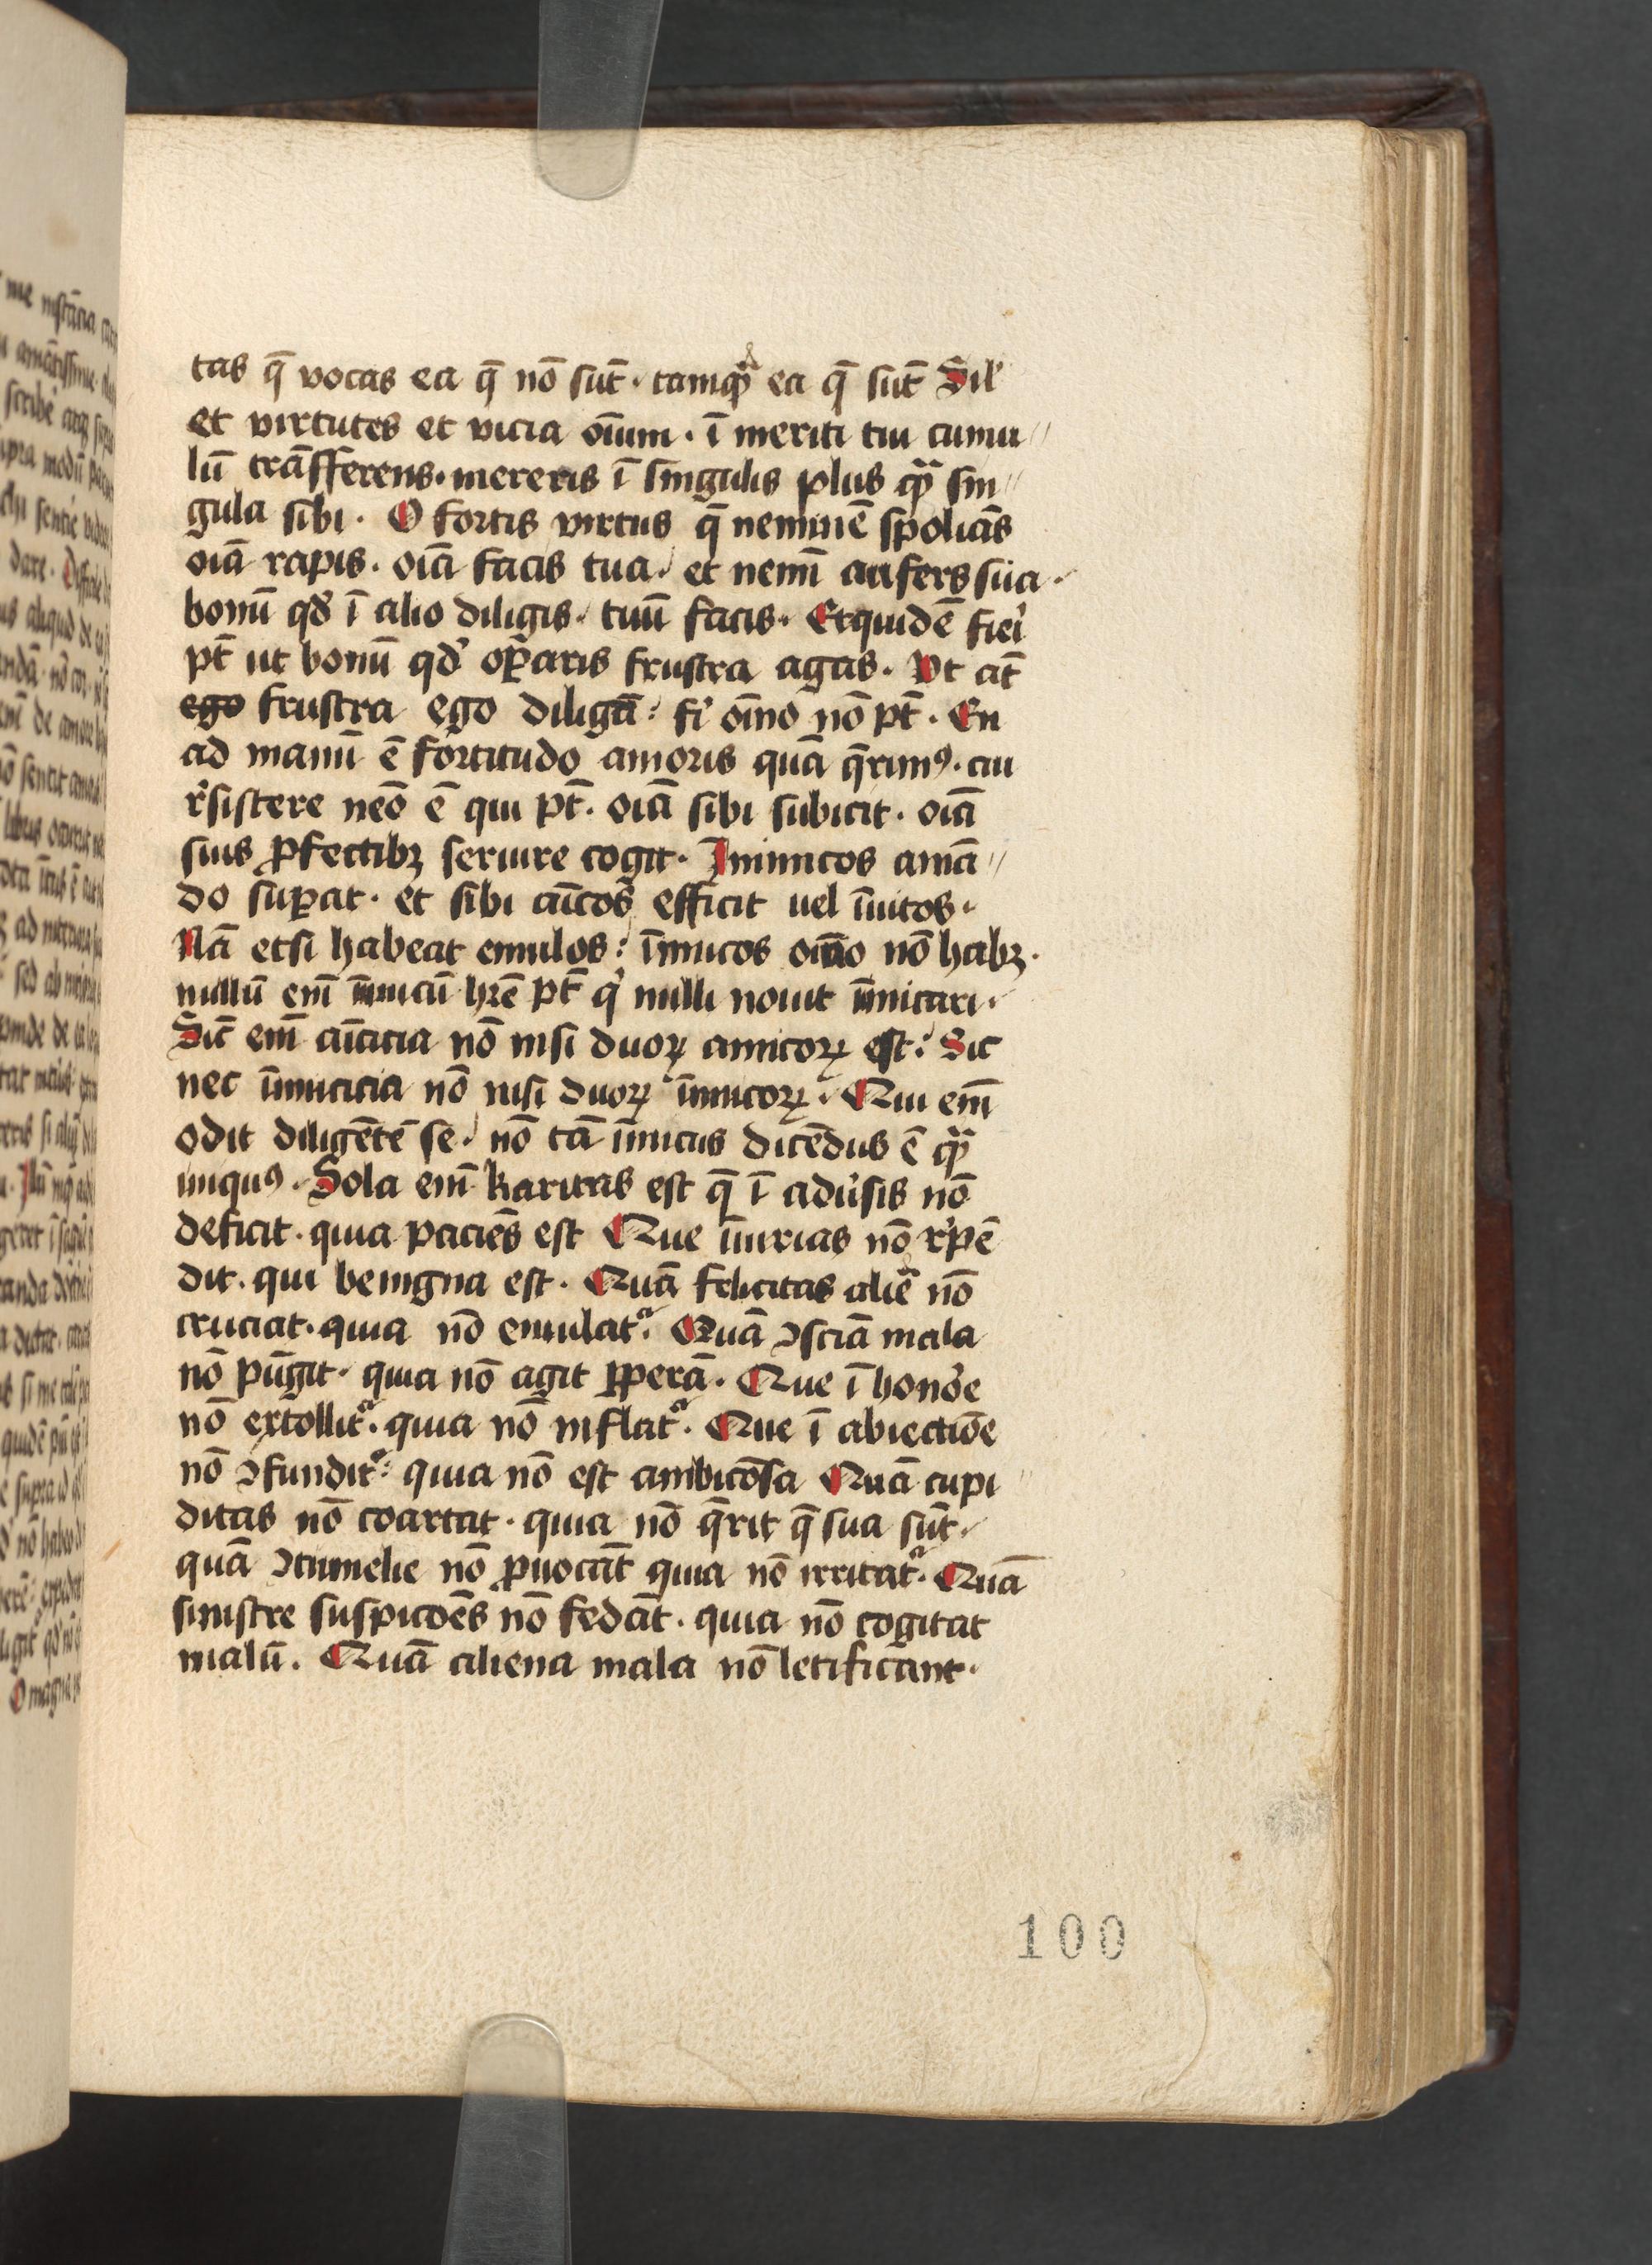 tas q̄ vocas ea q̄ nō sūt · tamqͣ̄ ea q̄ sūt Sil'
et virtutes et vicia oīum · ī meriti tui cumu
lū trāsfferens · mereris ī singulis plus qͣ̄ sin
gula sibi · O fortis virtus q̄ neminē spoliās
oīa rapis · oīa facis tua · et nemī aufers sua ·
bonū qd' ī alio diligis · tuū facis · Etquidē fiei̕
pt̄ ut bonū qd' oꝑaris frustra agas · Vt at̄
ego frustra ego diligā : fi̕ oīno nō pt̄ · En
ad manū ē fortitudo amoris quā q̄rimꝰ · cui
r̕sistere neō ē qui pt̄ · oīa sibi subicit · oīa
suis ꝓfectibꝫ seruire cogit · Inimicos amā
do suꝑat · et sibi aīcos efficit uel īuitos ·
Nā etsi habeat emulos : īimicos oīno nō habꝫ ·
nullū em̄ īimicū hr̄e pt̄ qͥ nulli nouit īimicari ·
Sic̄ em̄ aīcicia nō nisi duoꝝ amicoꝝ est : Sic
nec īimicicia nō nisi duoꝝ īimicoꝝ · Qui em̄
odit diligētē se · nō tā īimicus dicēdus ē qͣ̄
iniquꝰ · Sola em̄ karitas est q̄ ī adu̕sis nō
deficit · quia paciēs est Que īiurias nō r̕pē
dit · qui benigna est · Quā felicitas aliēa nō
cruciat · quia nō emulatᷣ · Quā ↄsciā mala
nō pūgit · quia nō agit ꝑꝑerā · Que ī hono̕e
nō extollitᷣ · quia nō inflatᷣ · Que ī abiectiōe
nō ↄfunditᷣ : quia nō est ambicōsa Quā cupi
ditas nō coartat · quia nō q̄rit q̄ sua sūt ·
quā ↄtumelie nō ꝓuocāt quia nō irritatᷣ · Quā
sinistre suspicōēs nō fedāt · quia nō cogitat
malū · Quā aliena mala nō letificant ·
100